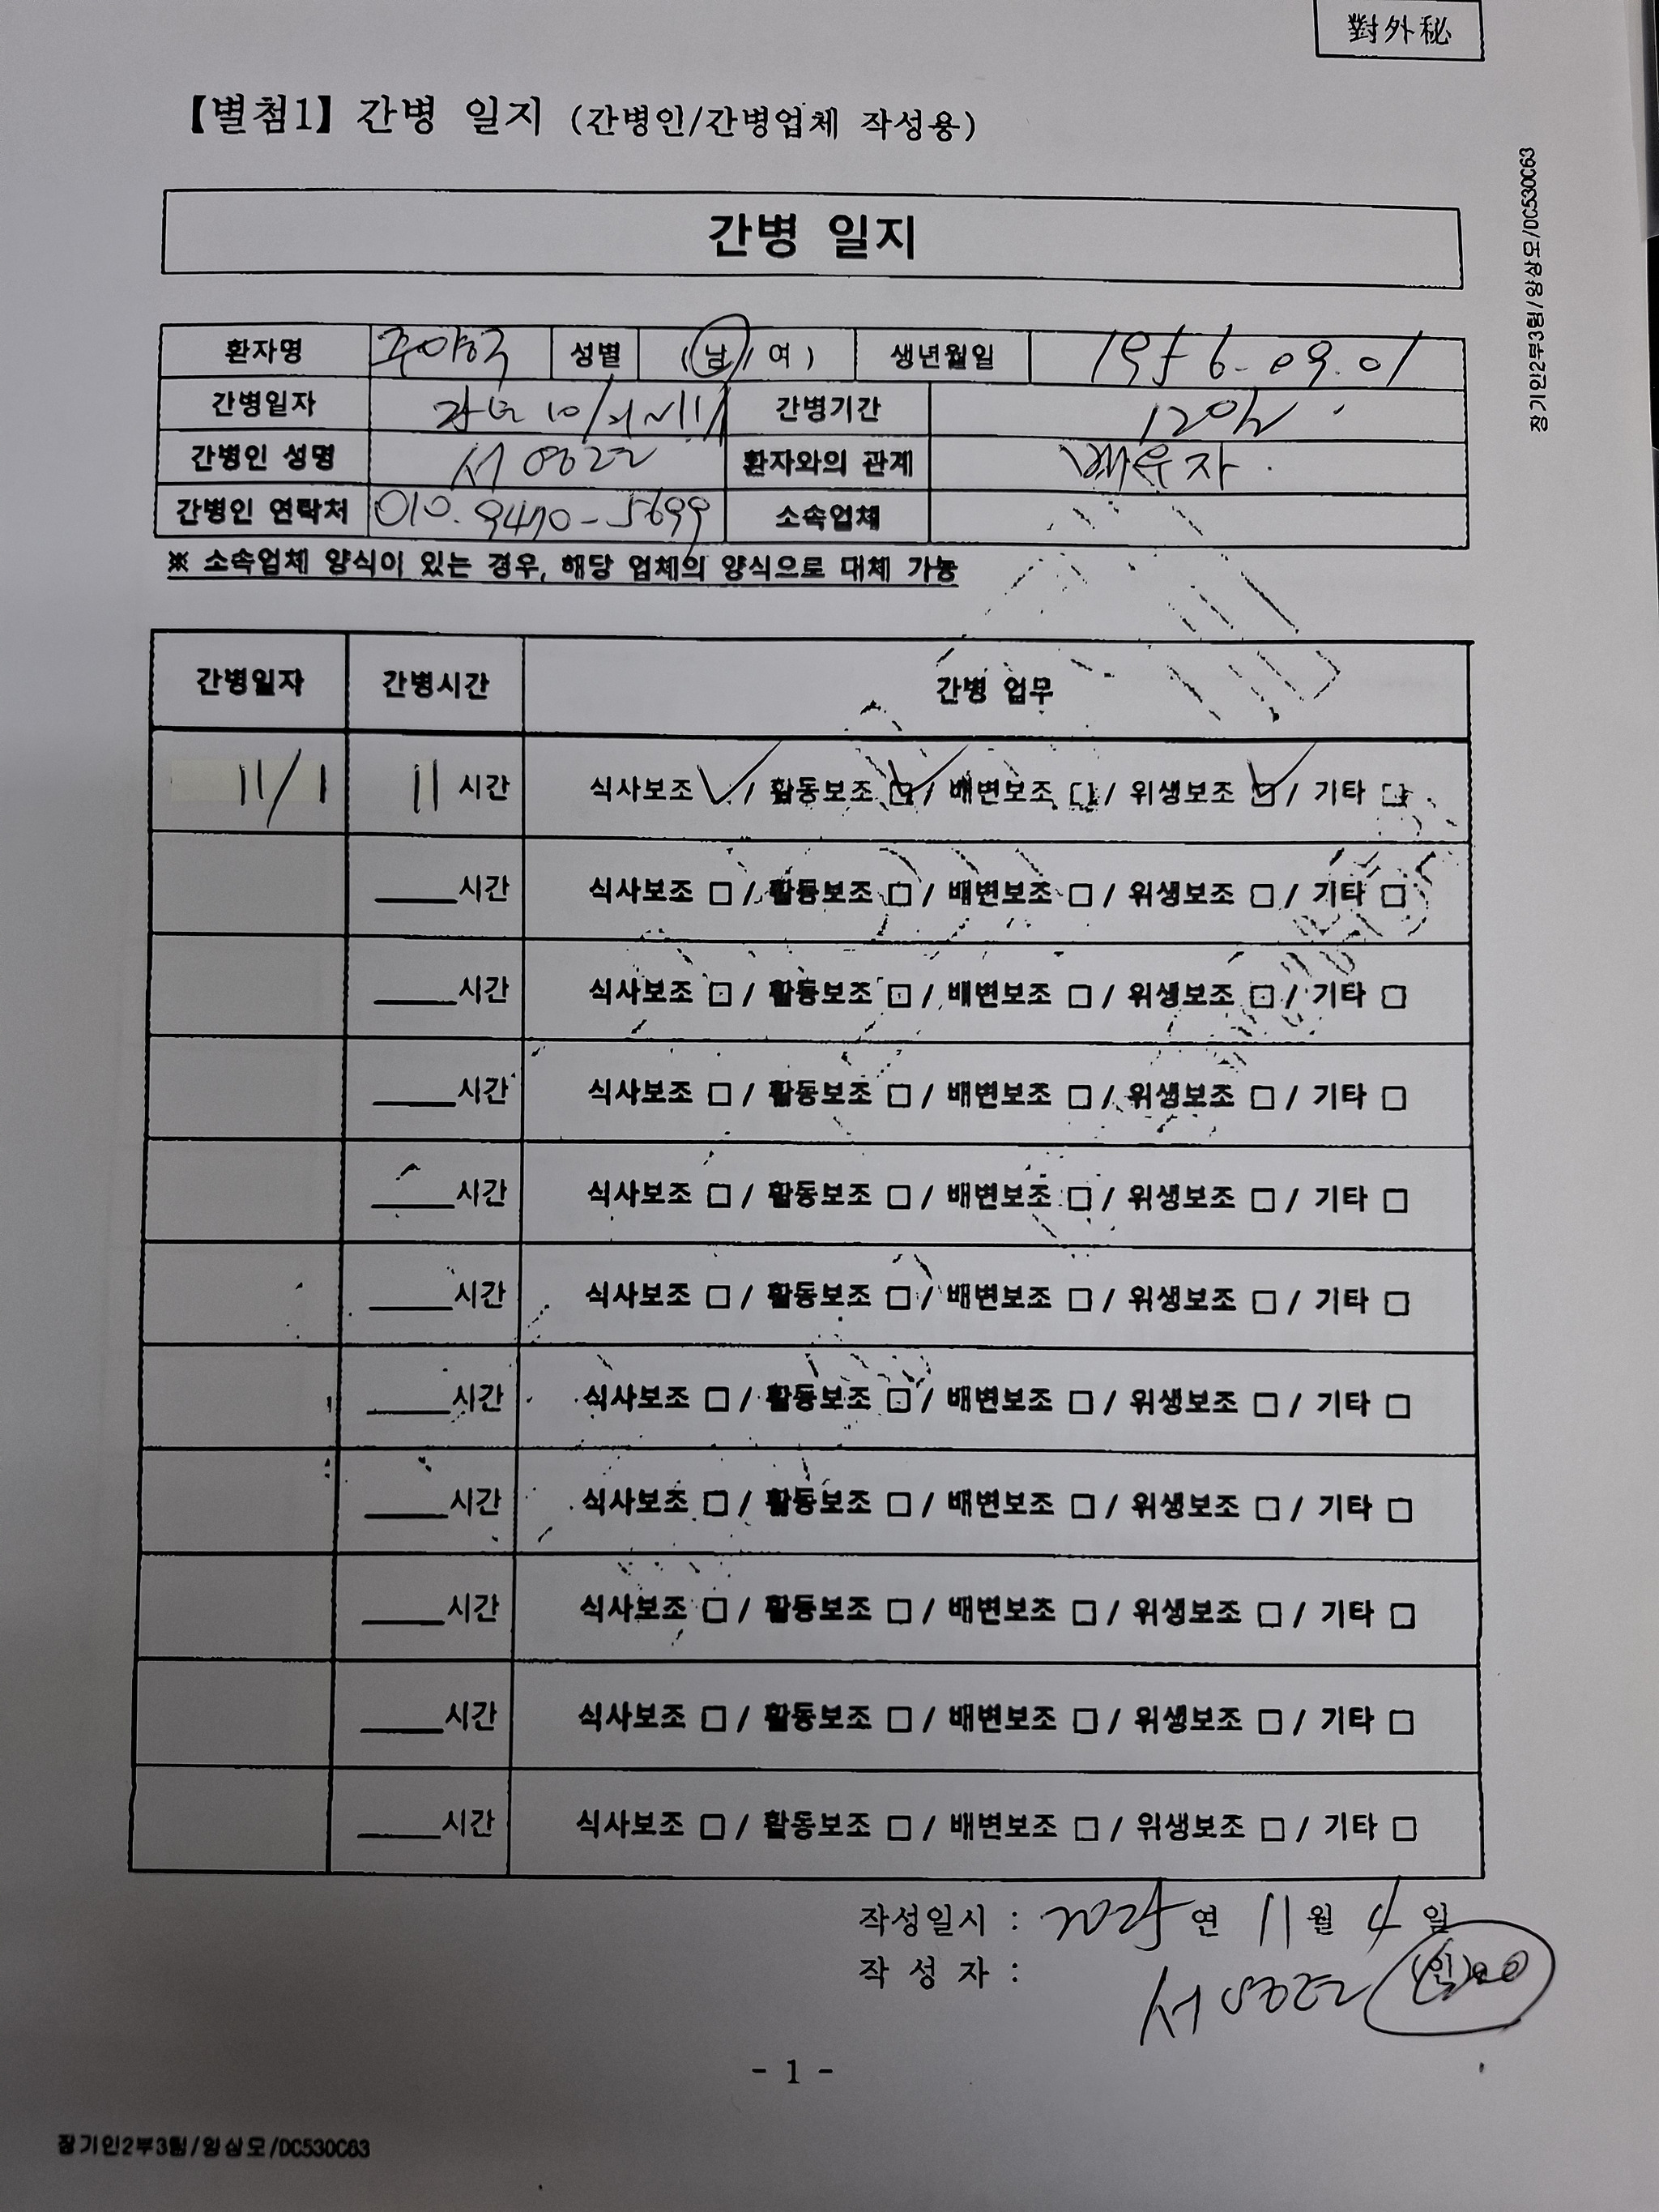 對外秘
【별첨1】 간병 일지 (간병인/간병업체 작성용)
장기인2부3팀/양상모/DC530C63
간병 일지
환자명 성별 (남/여) 생년월일 1956-09.01
간병일자 간병기간
간병인 성명 서 환자와의 관계 배우자
간병인 연락처 010.9470-5699 소속업체
※ 소속업체 양식이 있는 경우, 해당 업체의 양식으로 대체 가능
간병일자 간병시간 간병 업무
11/1 11 시간 식사보조 ✓ / 활동보조 ☑ / 배변보조 □ / 위생보조 ☑ / 기타 □
____시간 식사보조 □ / 활동보조 □ / 배변보조 □ / 위생보조 □ / 기타 □
____시간 식사보조 □ / 활동보조 □ / 배변보조 □ / 위생보조 □ / 기타 □
____시간 식사보조 □ / 활동보조 □ / 배변보조 □ / 위생보조 □ / 기타 □
____시간 식사보조 □ / 활동보조 □ / 배변보조 □ / 위생보조 □ / 기타 □
____시간 식사보조 □ / 활동보조 □ / 배변보조 □ / 위생보조 □ / 기타 □
____시간 식사보조 □ / 활동보조 □ / 배변보조 □ / 위생보조 □ / 기타 □
____시간 식사보조 □ / 활동보조 □ / 배변보조 □ / 위생보조 □ / 기타 □
____시간 식사보조 □ / 활동보조 □ / 배변보조 □ / 위생보조 □ / 기타 □
____시간 식사보조 □ / 활동보조 □ / 배변보조 □ / 위생보조 □ / 기타 □
____시간 식사보조 □ / 활동보조 □ / 배변보조 □ / 위생보조 □ / 기타 □
작성일시 : 2025 연 11 월 4 일
작 성 자 :
서 (인)
- 1 -
장기인2부3팀/양상모/DC530C63